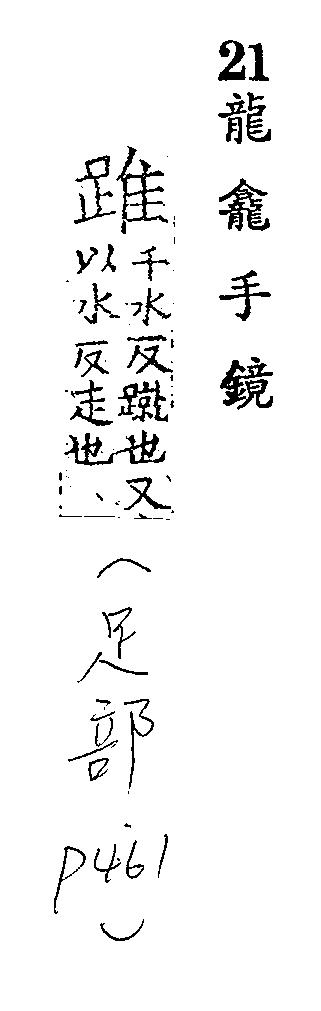 21龍龕手鏡
踓千水反蹴也又
以水反走也、
(足部
P461)